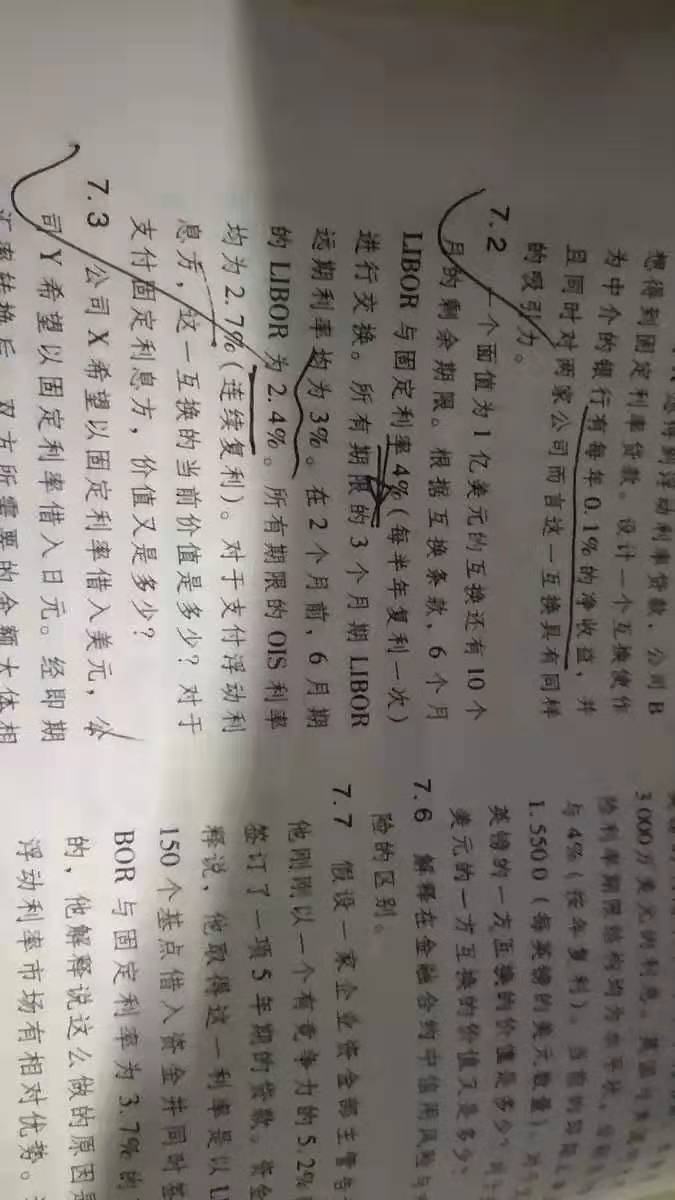 想得到浮动利率贷款、公司B
想得到固定利率贷款。设计一个互换使作
为中介的银行有每年0.1%的净收益，并
且同时对两家公司而言这一互换具有同样
的吸引力。
7.2 一个面值为1亿美元的互换还有10个
月的剩余期限。根据互换条款，6个月
LIBOR与固定利率4%（每半年复利一次）
进行交换。所有期限的3个月期LIBOR
远期利率均为3%。在2个月前，6月期
的LIBOR为2.4%。所有期限的OIS利率
均为2.7%（连续复利）。对于支付浮动利
息方，这一互换的当前价值是多少？对于
支付固定利息方，价值又是多少？
7.3 公司X希望以固定利率借入美元，公
司Y希望以固定利率借入日元。经即期
汇率转换后，双方所需要的金额大体相
3000万美元的利息。英国与美
险利率期限结构均为水平状，
与4%（按年复利）。当前的即期
1.5500（每英镑的美元数量）。对
英镑的一方互换的价值是多少？对
美元的一方互换的价值又是多少？
7.6 解释在金融合约中信用风险与
险的区别。
7.7 假设一家企业资金部主管告
他刚刚以一个有竞争力的5.2%
签订了一项5年期的贷款。资金
释说，他取得这一利率是以LI
150个基点借入资金并同时签
BOR与固定利率为3.7%的
的，他解释说这么做的原因是
浮动利率市场有相对优势。